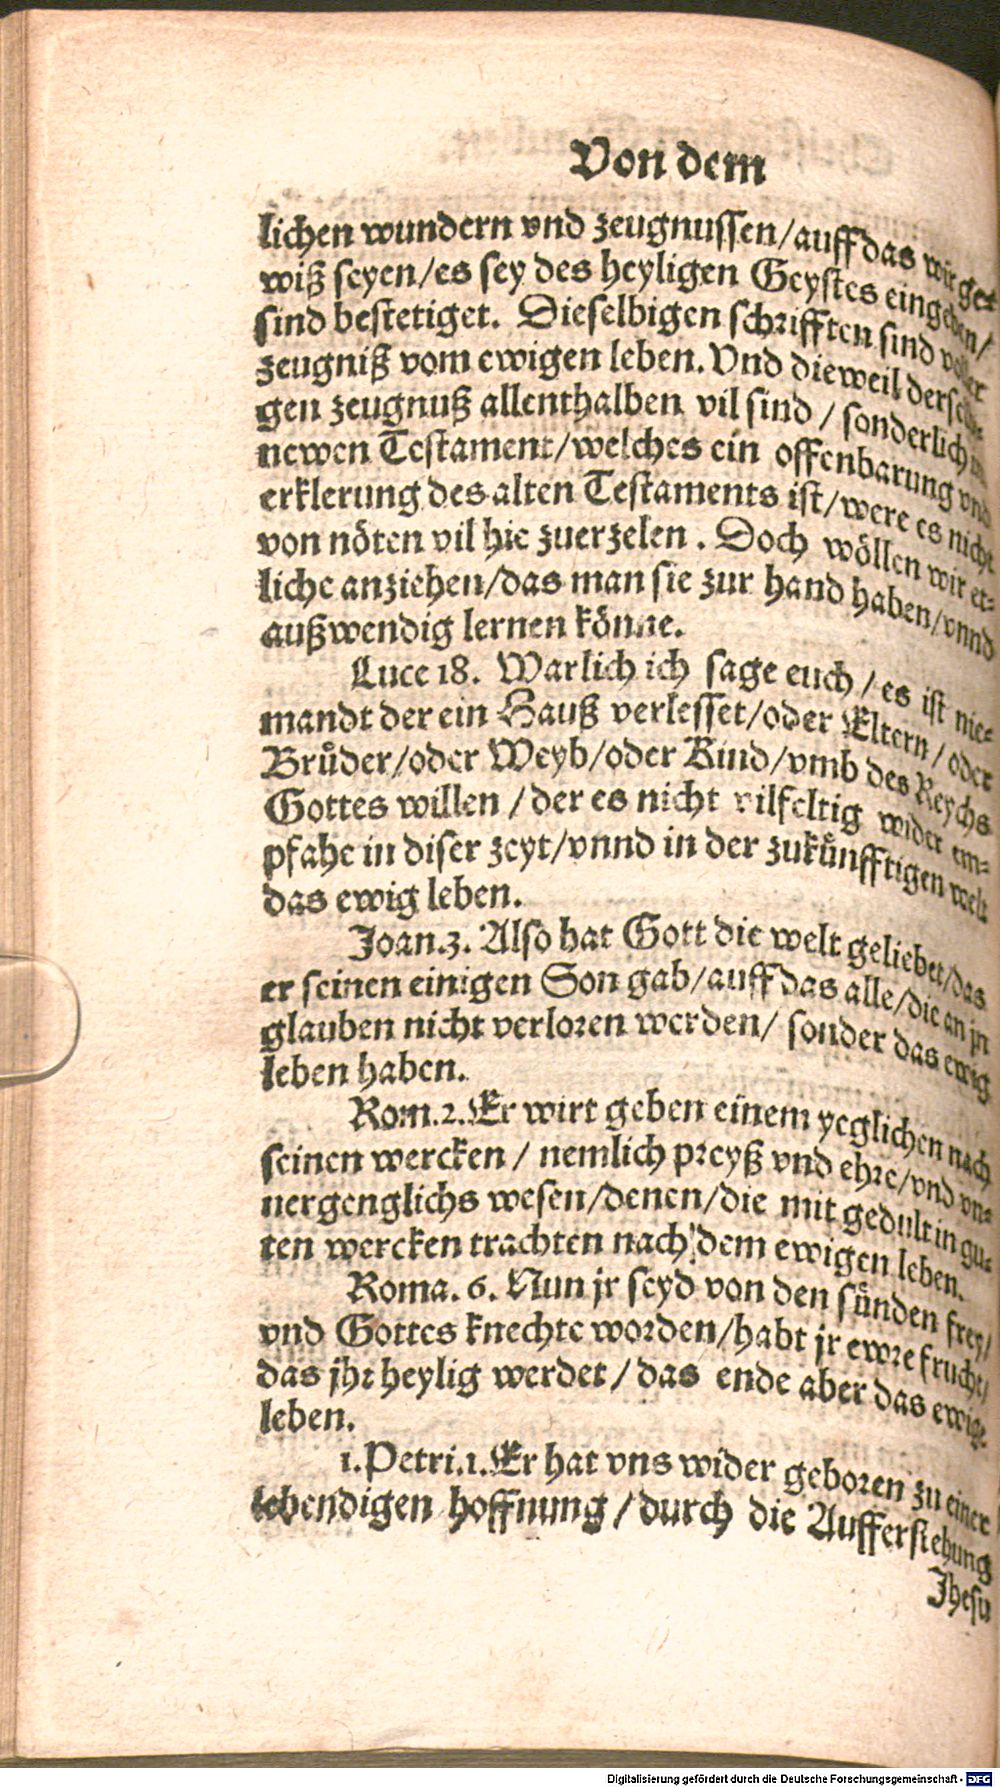 Von dem
lichen wundern vnd zeugnussen/auff das wir ge-
wiß seyen/es sey des heyligen Geystes eingeben/
sind bestetiget. Dieselbigen schrifften sind voller
zeugniß vom ewigen leben. Vnd dieweil derselbi-
gen zeugnuß allenthalben vil sind / sonderlich im
newen Testament/welches ein offenbarung vnd
erklerung des alten Testaments ist/were es nicht
von nöten vil hie zuerzelen. Doch wöllen wir et-
liche anziehen/das man sie zur hand haben/vnnd
außwendig lernen könne.
Luce 18. Warlich ich sage euch / es ist nie-
mandt der ein Hauß verlesset/oder Eltern / oder
Brůder/oder Weyb/oder Kind/vmb des Reychs
Gottes willen / der es nicht vilfeltig wider em-
pfahe in diser zeyt/vnnd in der zukünfftigen welt
das ewig leben.
Joan.3. Also hat Gott die welt geliebet/das
er seinen einigen Son gab/auff das alle/die an jn
glauben nicht verloren werden/ sonder das ewig
leben haben.
Rom.2. Er wirt geben einem yeglichen nach
seinen wercken / nemlich preyß vnd ehre/vnd vn-
uergenglichs wesen/denen/die mit gedult in gu-
ten wercken trachten nach dem ewigen leben.
Roma. 6. Nun jr seyd von den sünden frey/
vnd Gottes knechte worden/habt jr ewre frucht/
das jhr heylig werdet / das ende aber das ewige
leben.
1. Petri.1. Er hat vns wider geboren zu einer
lebendigen hoffnung / durch die Aufferstehung
Jhesu
Digitalisierung gefördert durch die Deutsche Forschungsgemeinschaft - DFG